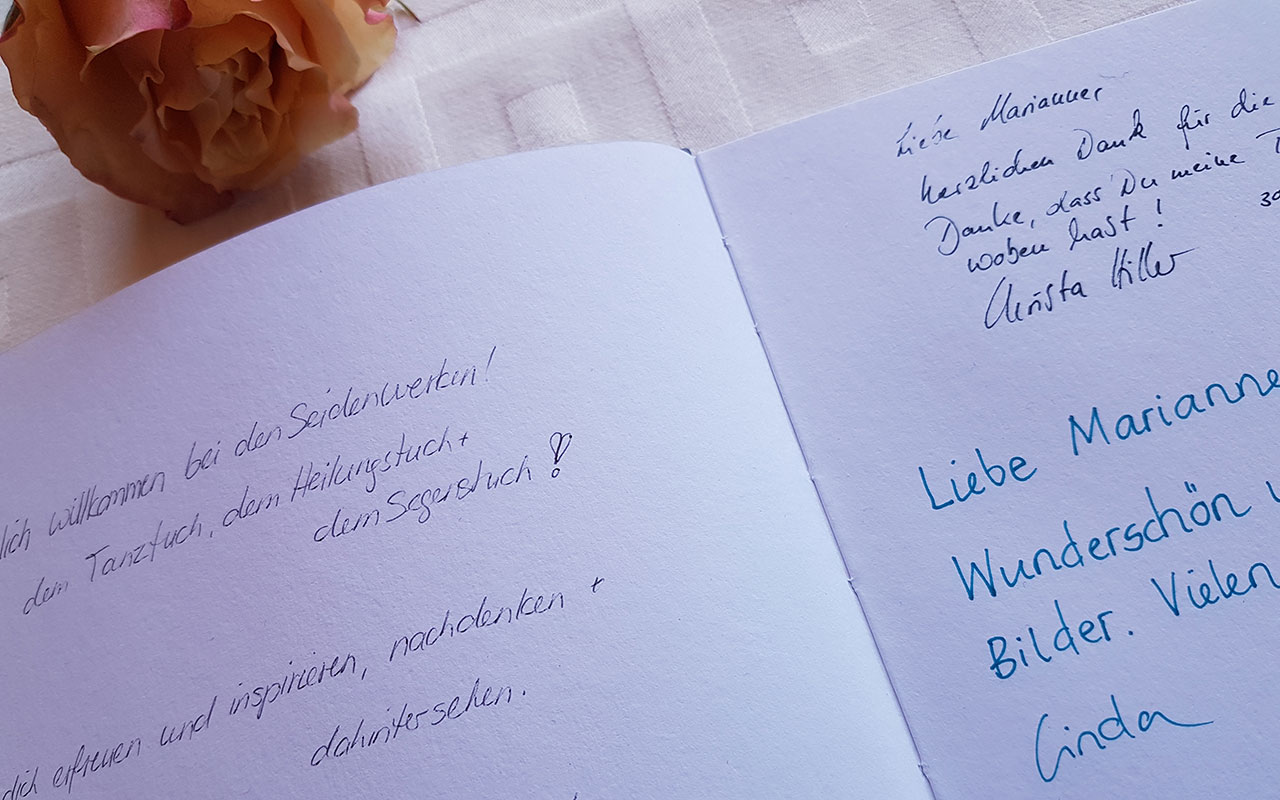 lich willkommen bei den Seidenwerken!
dem Tanztuch, dem Heilungstuch +
dem Segenstuch !
dich erfreuen und inspirieren, nachdenken +
dahintersehen.
Liebe Marianne,
herzlichen Dank für die
Danke, dass Du meine T
woben hast !
30
Christa Hiller
Liebe Marianne
Wunderschön
Bilder. Vielen
Linda